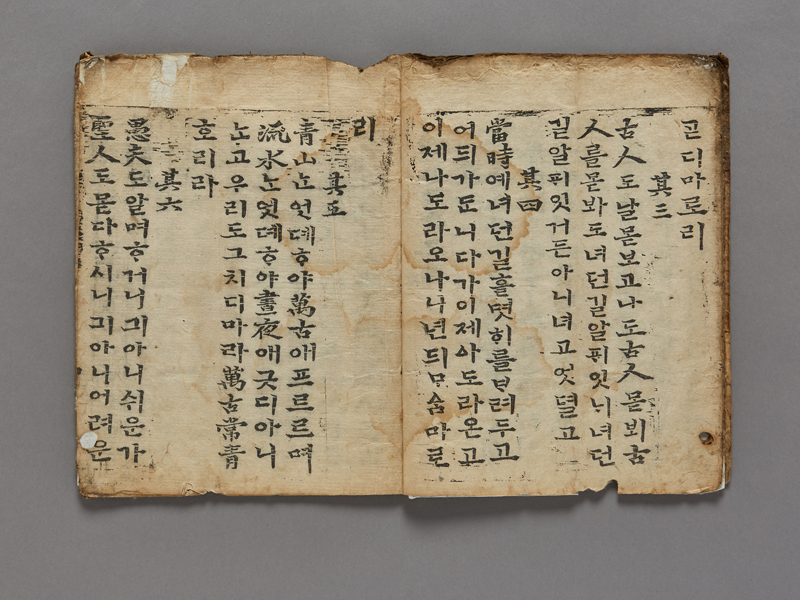 귿디마로리
其三
古人도날몯보고나도古人몯뵈古
人를몯봐도녀던길알ᄑᆡ잇ᄂᆡ녀던
길알ᄑᆡ잇거든아니녀고엇뎔고
其四
當時예녀던길흘몃ᄒᆡ를ᄇᆞ려두고
어듸가ᄃᆞᆫ니다가이제아도라온고
이제나도라오나니년듸ᄆᆞᅀᆞᆷ마로
리
其五
青山ᄂᆞᆫ엇뎨ᄒᆞ야萬古애프르르며
流水ᄂᆞᆫ엇뎨ᄒᆞ야晝夜애긋디아니
ᄂᆞᆫ고우리도그치디마라萬古常青
호리라
其六
愚夫도알며ᄒᆞ거니긔아니쉬운가
聖人도몯다ᄒᆞ시니긔아니어려운